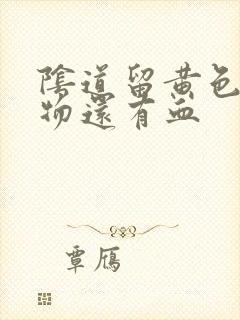 陰道留黃色
物還有血
覃雁